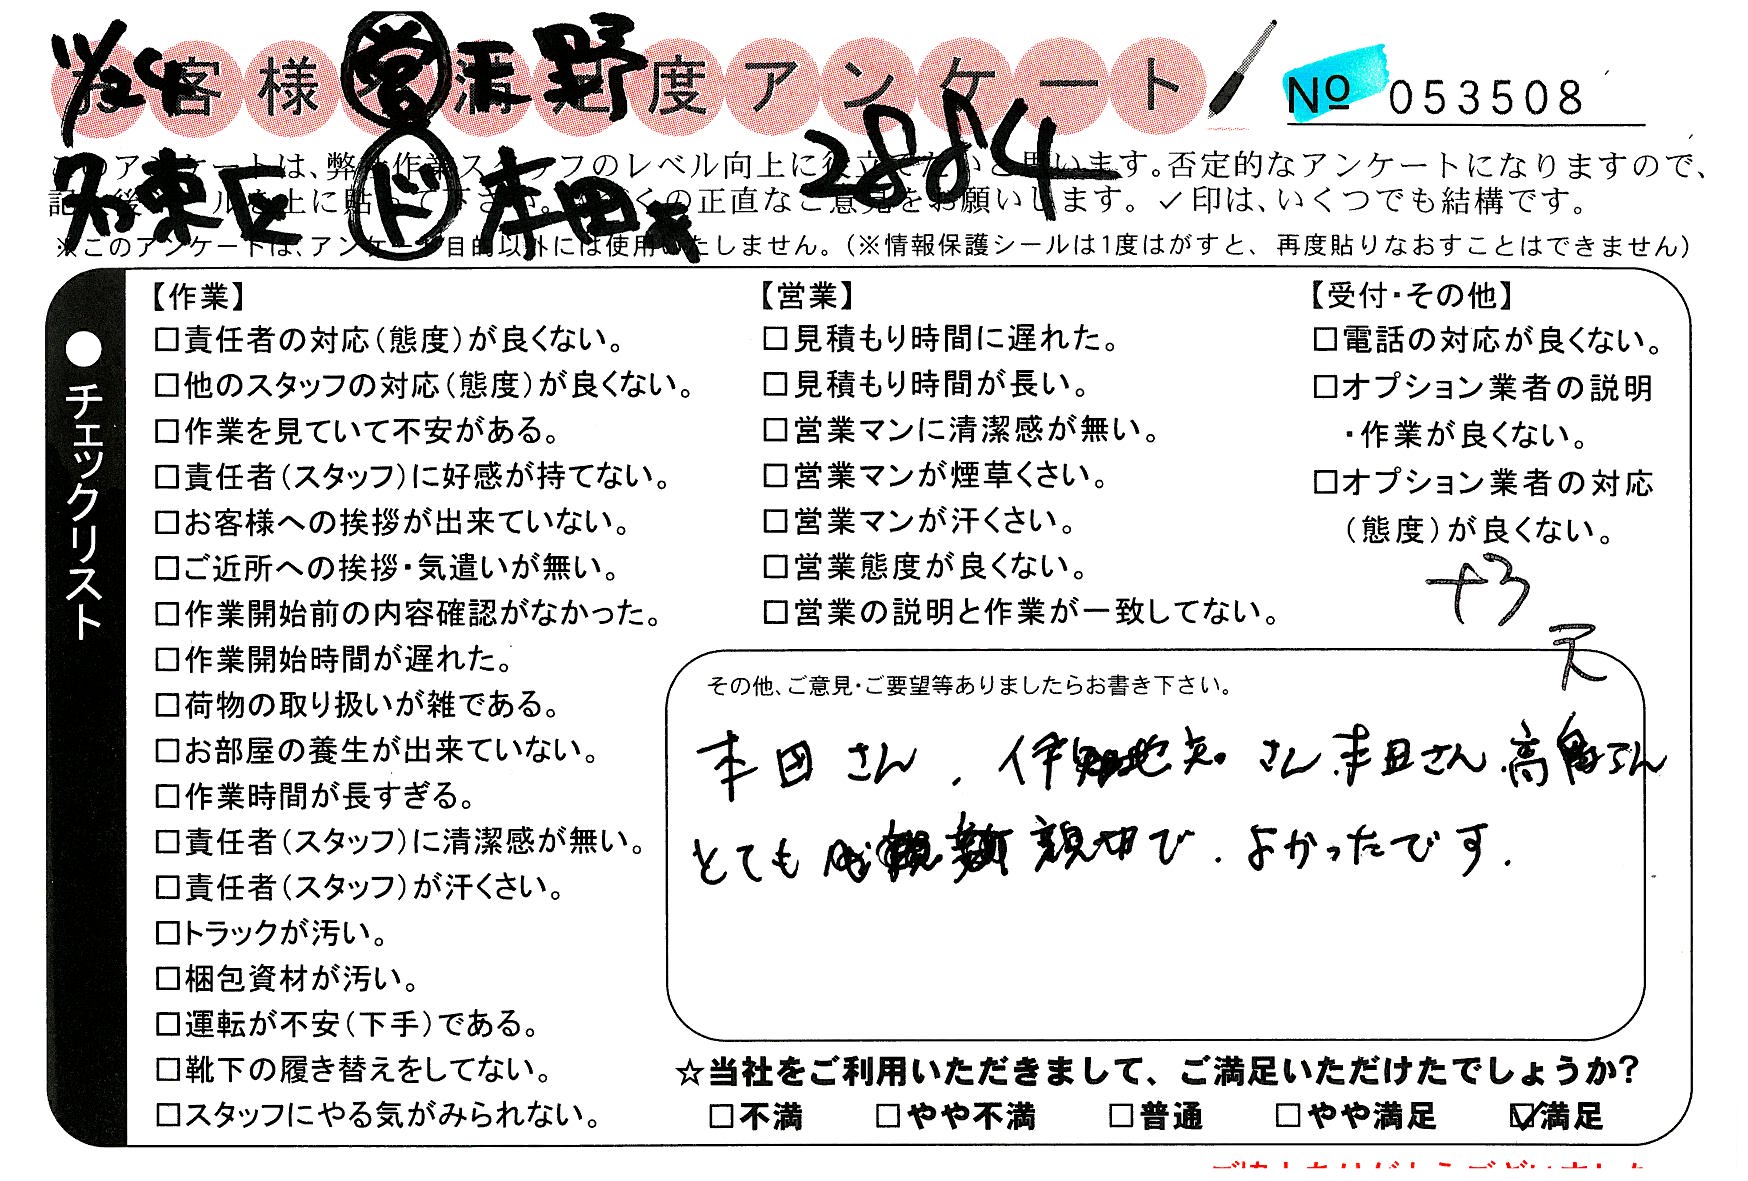 11/24 営 天野
お客様満足度アンケート
№ 053508
2884
名東区 ド 本田
このアンケートは、弊社作業スタッフのレベル向上に役立てたいと思います。否定的なアンケートになりますので、
記入後シールを上に貼って下さい。 多くの正直なご意見をお願いします。✓印は、いくつでも結構です。
※このアンケートは、アンケート目的以外には使用いたしません。（※情報保護シールは1度はがすと、再度貼りなおすことはできません）
●チェックリスト
【作業】
□責任者の対応（態度）が良くない。
□他のスタッフの対応（態度）が良くない。
□作業を見ていて不安がある。
□責任者（スタッフ）に好感が持てない。
□お客様への挨拶が出来ていない。
□ご近所への挨拶・気遣いが無い。
□作業開始前の内容確認がなかった。
□作業開始時間が遅れた。
□荷物の取り扱いが雑である。
□お部屋の養生が出来ていない。
□作業時間が長すぎる。
□責任者（スタッフ）に清潔感が無い。
□責任者（スタッフ）が汗くさい。
□トラックが汚い。
□梱包資材が汚い。
□運転が不安（下手）である。
□靴下の履き替えをしてない。
□スタッフにやる気がみられない。
【営業】
□見積もり時間に遅れた。
□見積もり時間が長い。
□営業マンに清潔感が無い。
□営業マンが煙草くさい。
□営業マンが汗くさい。
□営業態度が良くない。
□営業の説明と作業が一致してない。
【受付・その他】
□電話の対応が良くない。
□オプション業者の説明
・作業が良くない。
□オプション業者の対応
（態度）が良くない。
+3
天
その他、ご意見・ご要望等ありましたらお書き下さい。
本田さん、伊地知さん、本田さん、高さん
とても親切で、よかったです。
☆当社をご利用いただきまして、ご満足いただけたでしょうか？
□不満 □やや不満 □普通 □やや満足 ☑満足